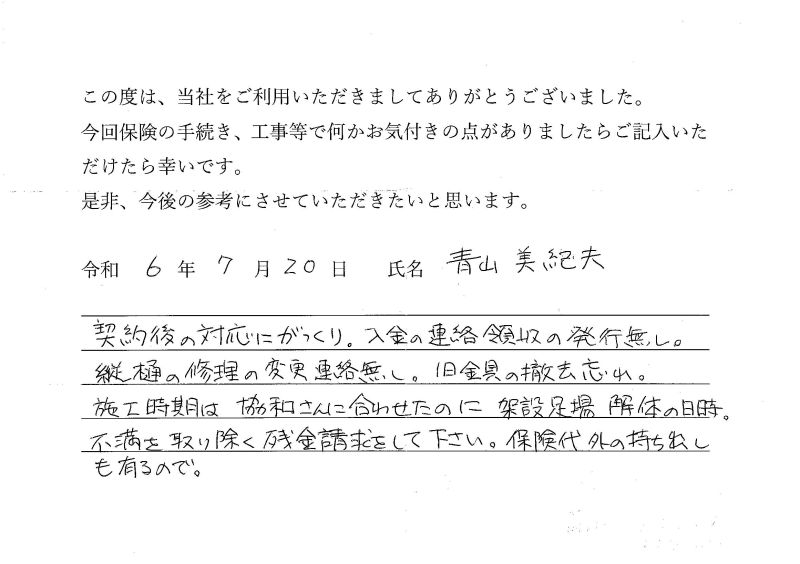 この度は、当社をご利用いただきましてありがとうございました。
今回保険の手続き、工事等で何かお気付きの点がありましたらご記入いた
だけたら幸いです。
是非、今後の参考にさせていただきたいと思います。
令和 6 年 7 月 20 日 氏名 青山 美紀夫
契約後の対応にがっくり。入金の連絡領収の発行無し。
縦樋の修理の変更連絡無し。旧金具の撤去忘れ。
施工時期は 協和さんに合わせたのに 架設足場 解体の日時。
不満を取り除く残金請求をして下さい。保険代外の持ち出し
も有るので。